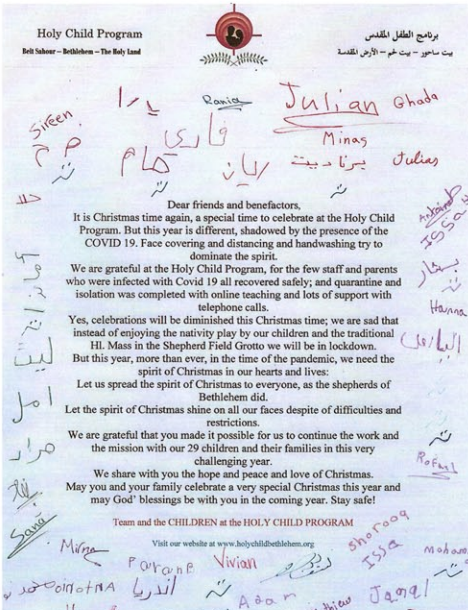 Holy Child Program
Beit Sahour – Bethlehem – The Holy Land
برنامج الطفل المقدس
بيت ساحور – بيت لحم – الأرض المقدسة
يارا
Rania
Julian
Ghada
Sireen
فاري
Minas
همام
ريان
برناديت
Julias
Dear friends and benefactors,
It is Christmas time again, a special time to celebrate at the Holy Child
Program. But this year is different, shadowed by the presence of the
COVID 19. Face covering and distancing and handwashing try to
dominate the spirit.
We are grateful at the Holy Child Program, for the few staff and parents
who were infected with Covid 19 all recovered safely; and quarantine and
isolation was completed with online teaching and lots of support with
telephone calls.
Yes, celebrations will be diminished this Christmas time; we are sad that
instead of enjoying the nativity play by our children and the traditional
Hl. Mass in the Shepherd Field Grotto we will be in lockdown.
But this year, more than ever, in the time of the pandemic, we need the
spirit of Christmas in our hearts and lives:
Let us spread the spirit of Christmas to everyone, as the shepherds of
Bethlehem did.
Let the spirit of Christmas shine on all our faces despite of difficulties and
restrictions.
We are grateful that you made it possible for us to continue the work and
the mission with our 29 children and their families in this very
challenging year.
We share with you the hope and peace and love of Christmas.
May you and your family celebrate a very special Christmas this year and
may God' blessings be with you in the coming year. Stay safe!
Team and the CHILDREN at the HOLY CHILD PROGRAM
Visit our website at www.holychildbethlehem.org
Issa
Hanna
ليث
امل
مراد
Rafael
Sana
Mirna
Vivian
Shorooq
Issa
اندريا
Adam
Jamal